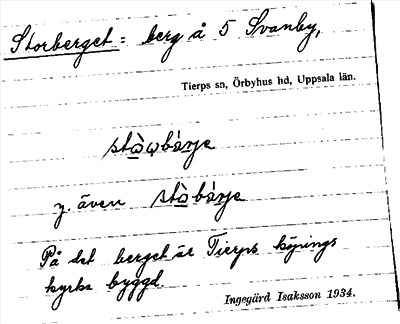 Storberget: berg å 5 Svanby,
Tierps sn, Örbyhus hd, Uppsala län.
y. även
På det berget är Tierps köpings
kyrka byggd.
Ingegärd Isaksson 1934.